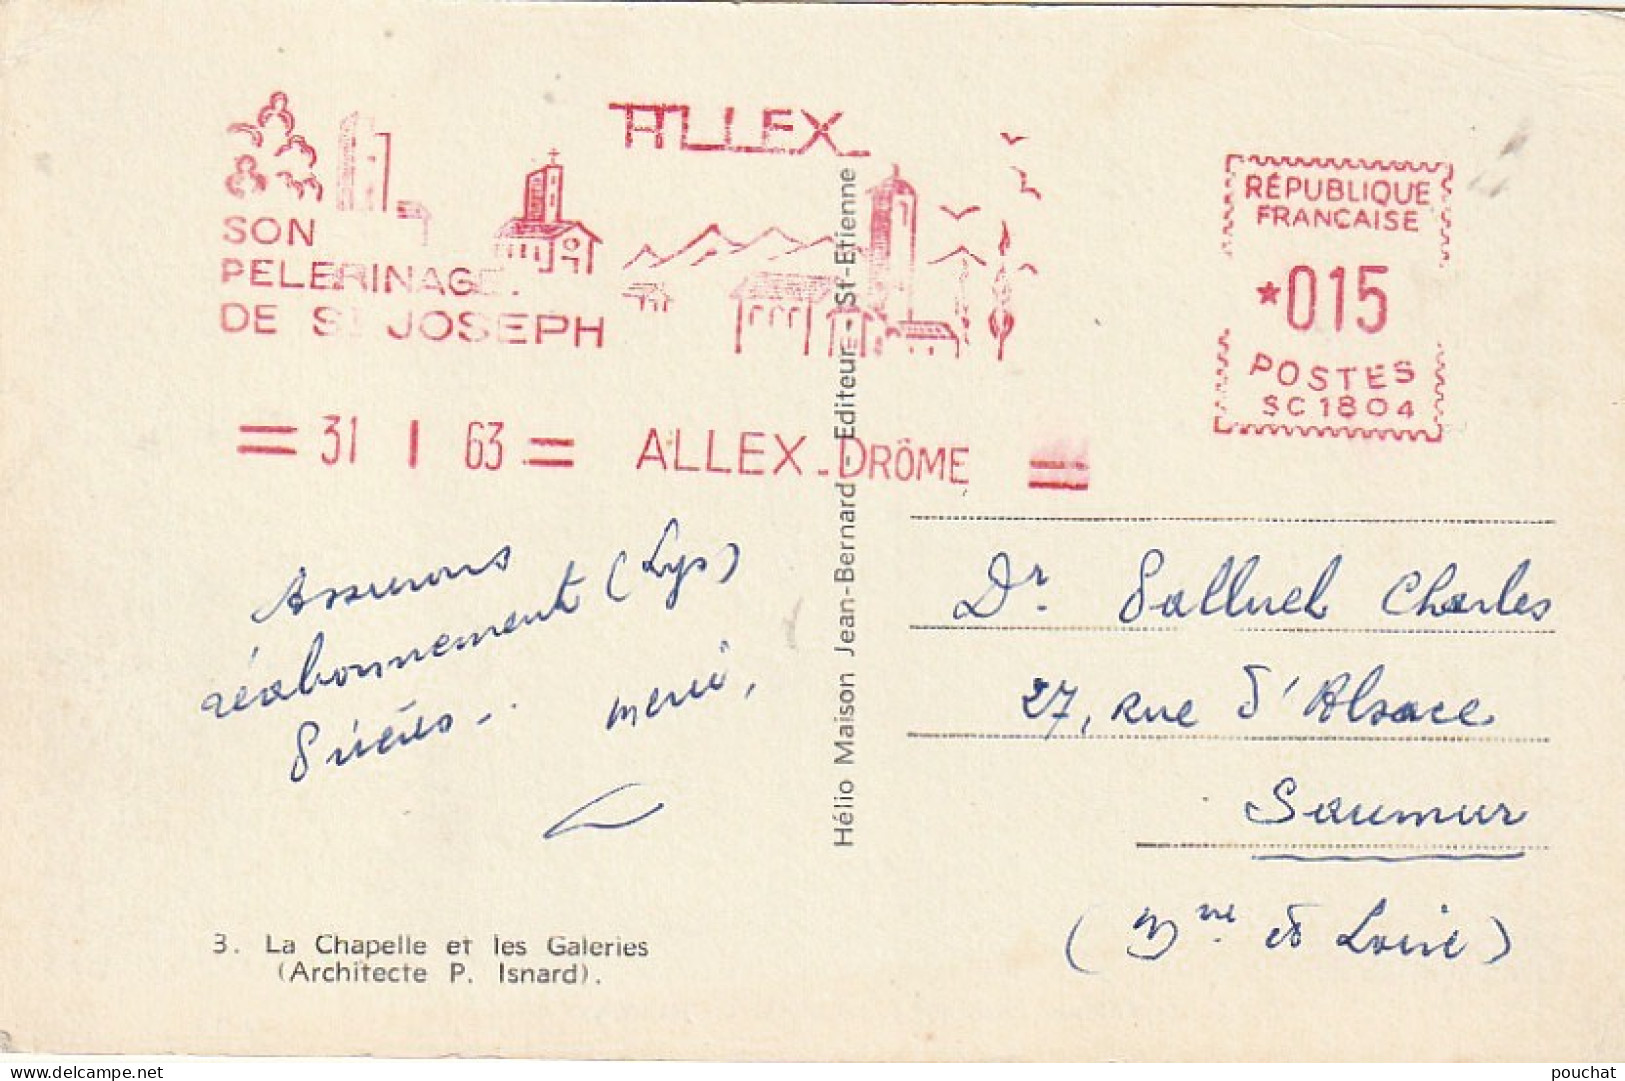 ALLEX
SON
PELERINAGE
DE St JOSEPH
= 31 I 63 = ALLEX - DRÔME =
RÉPUBLIQUE
FRANCAISE
*015
POSTES
SC1804
Hélio Maison Jean-Bernard - Editeur - St-Etienne
Assurons
réabonnement (Lys)
Prières - merci,
Dr. Salluel Charles
27, Rue d'Alsace
Saumur
(Mne et Loire)
3. La Chapelle et les Galeries
(Architecte P. Isnard).
pouchat